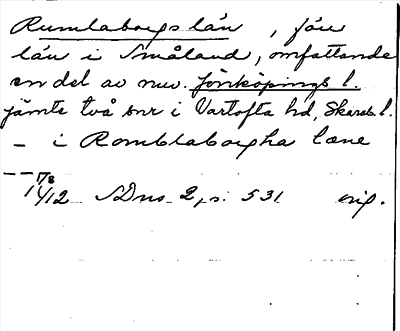 Rumlaborgs län, förr
län i Småland, omfattande
en del av nuv. Jönköpings l.
jämte två snr i Vartofta hd, Skarab. l.
– i Romblaborgha læne
– – 17/8 1412 SDns 2, s. 531 orig.